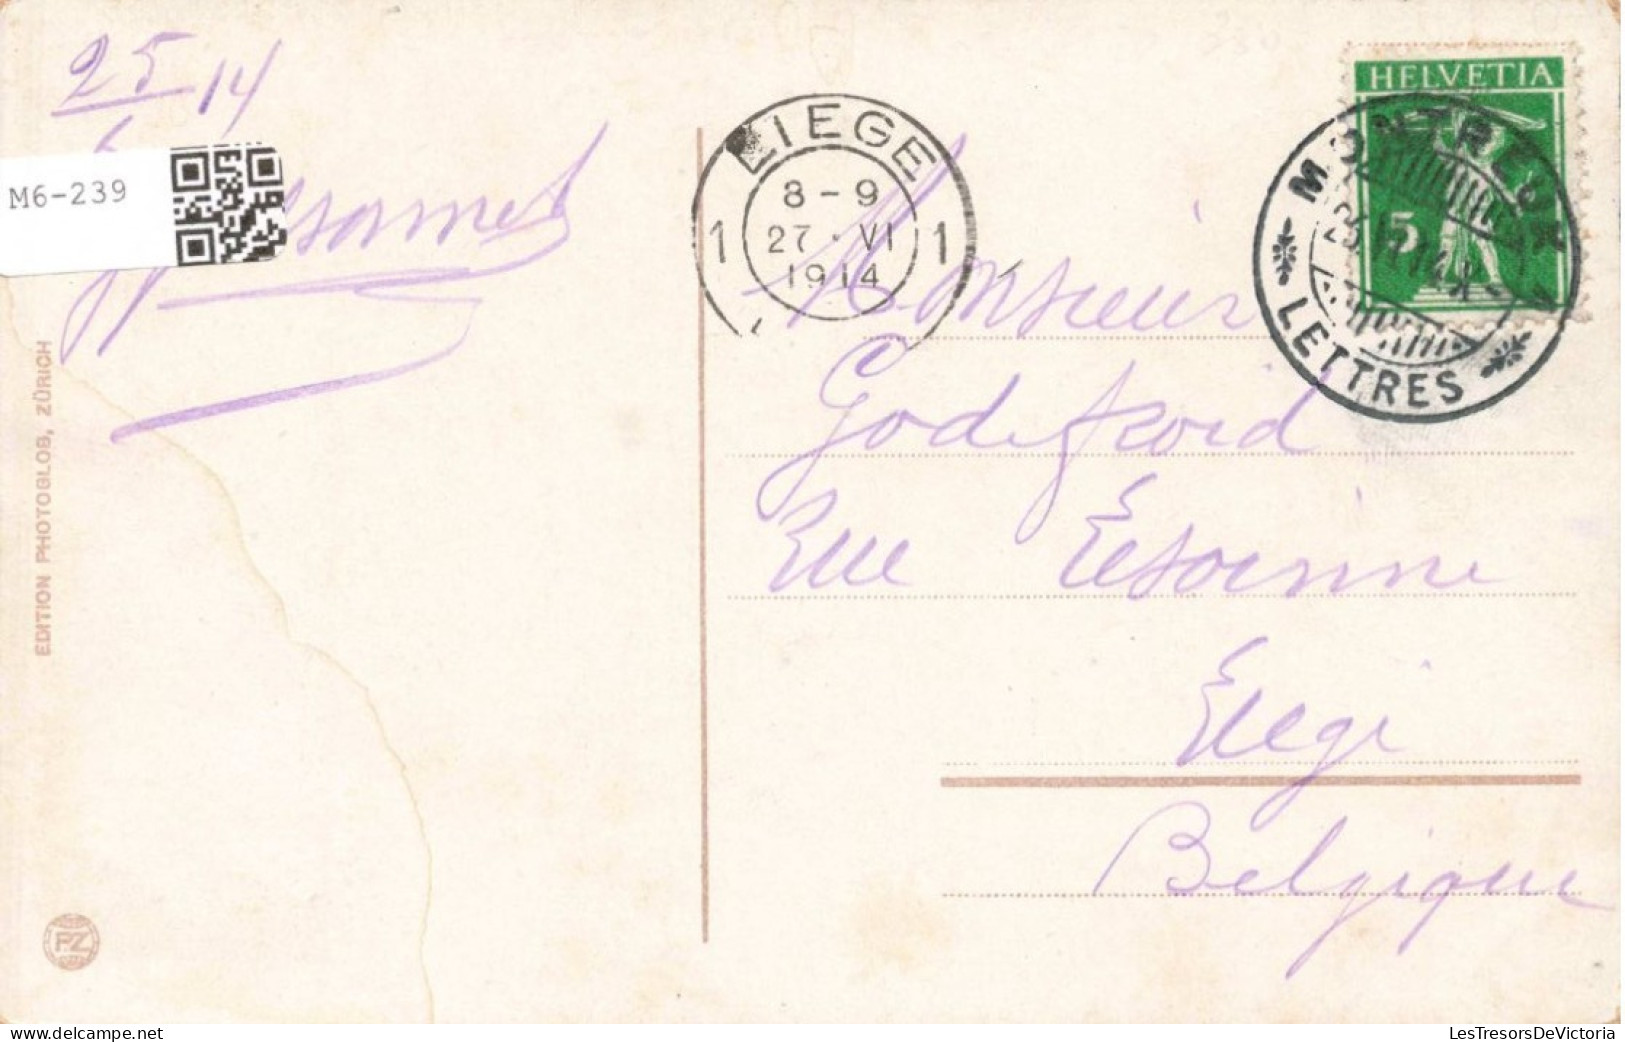 25/14
M6-239
EDITION PHOTOGLOB, ZÜRICH
PZ
LIEGE
1 8-9 1
27·VI
1914
HELVETIA
5
MONTREUX 1
LETTRES
Monsieur
Godefroid
Rue
Liege
Belgique
LesTresorsDeVictoria
www.delcampe.net